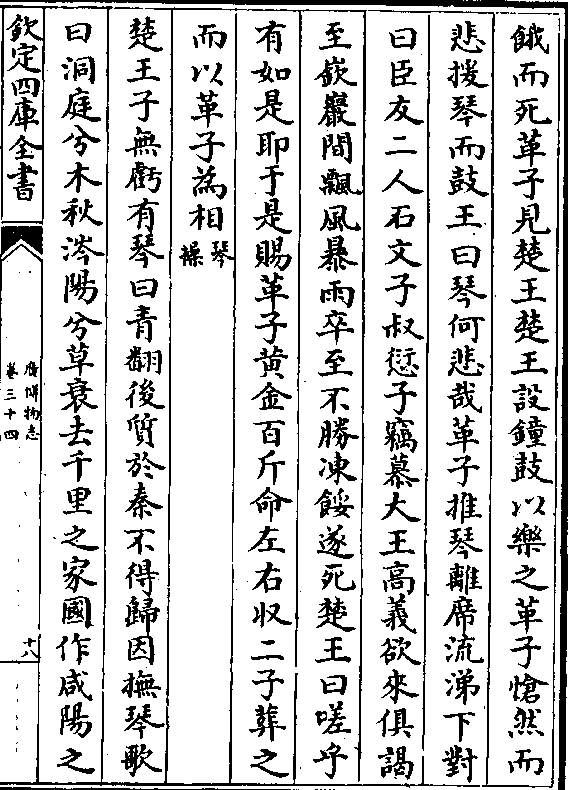 餓而死革子見楚王楚王設鐘鼓以樂之革子愴然而
悲援琴而鼓王曰琴何悲哉革子推琴離席流涕下對
曰臣友二人石文子叔愆子竊慕大王高義欲來俱謁
至嶔巖間飄風暴雨卒至不勝凍餒遂死楚王曰嗟乎
有如是耶于是賜革子黄金百斤命左右収二子葬之
而以革子為相琴操
楚王子無虧有琴曰青翻後質於秦不得歸因撫琴歌
曰洞庭兮木秋涔陽兮草衰去千里之家國作咸陽之
欽定四庫全書
廣博物志
卷三十四
十八